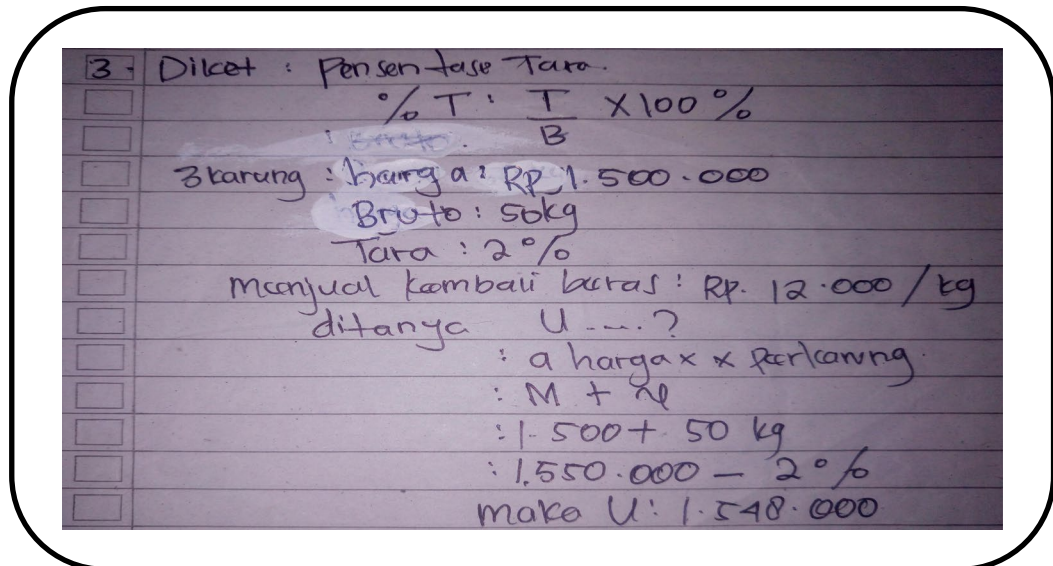 3. Diket : Persentase Tara.
% T : T/B X 100 %
: Bruto.
3 karung : harga : Rp 1.500.000
Bruto : 50kg
Tara : 2 %
menjual kembali beras : Rp. 12.000 / kg
ditanya U ....?
: a harga x x perkarung.
: M +
: 1.500 + 50 kg
: 1.550.000 – 2 %
maka U : 1.548.000